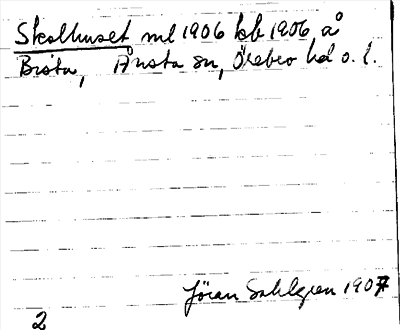 Skolhuset ml 1906 kb 1906 å
Brista, Ånsta sn, Örebro hd o. l.
Jöran Sahlgren 1907
2